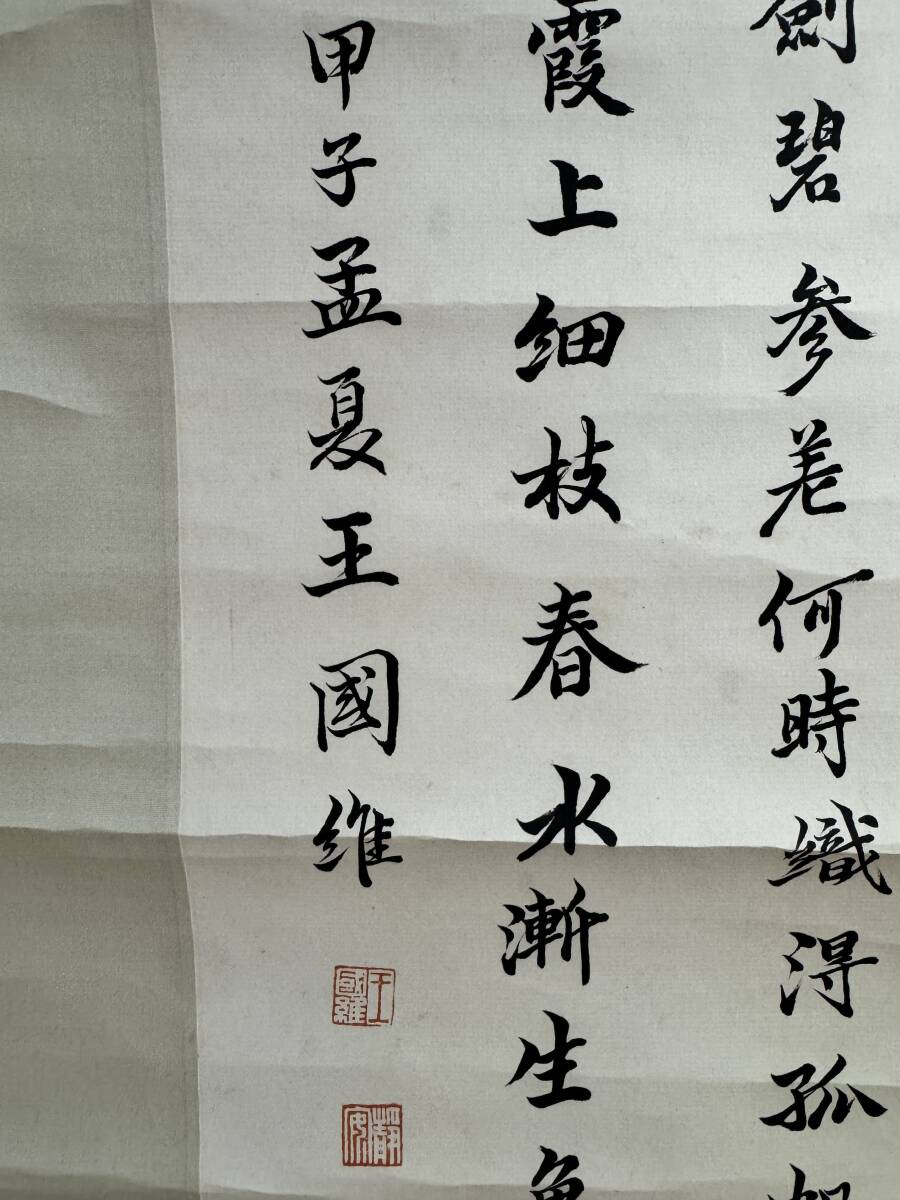 劍碧參差何時織得孤帆
霞上細枝春水漸生魚
甲子孟夏王國維
王國維
靜安